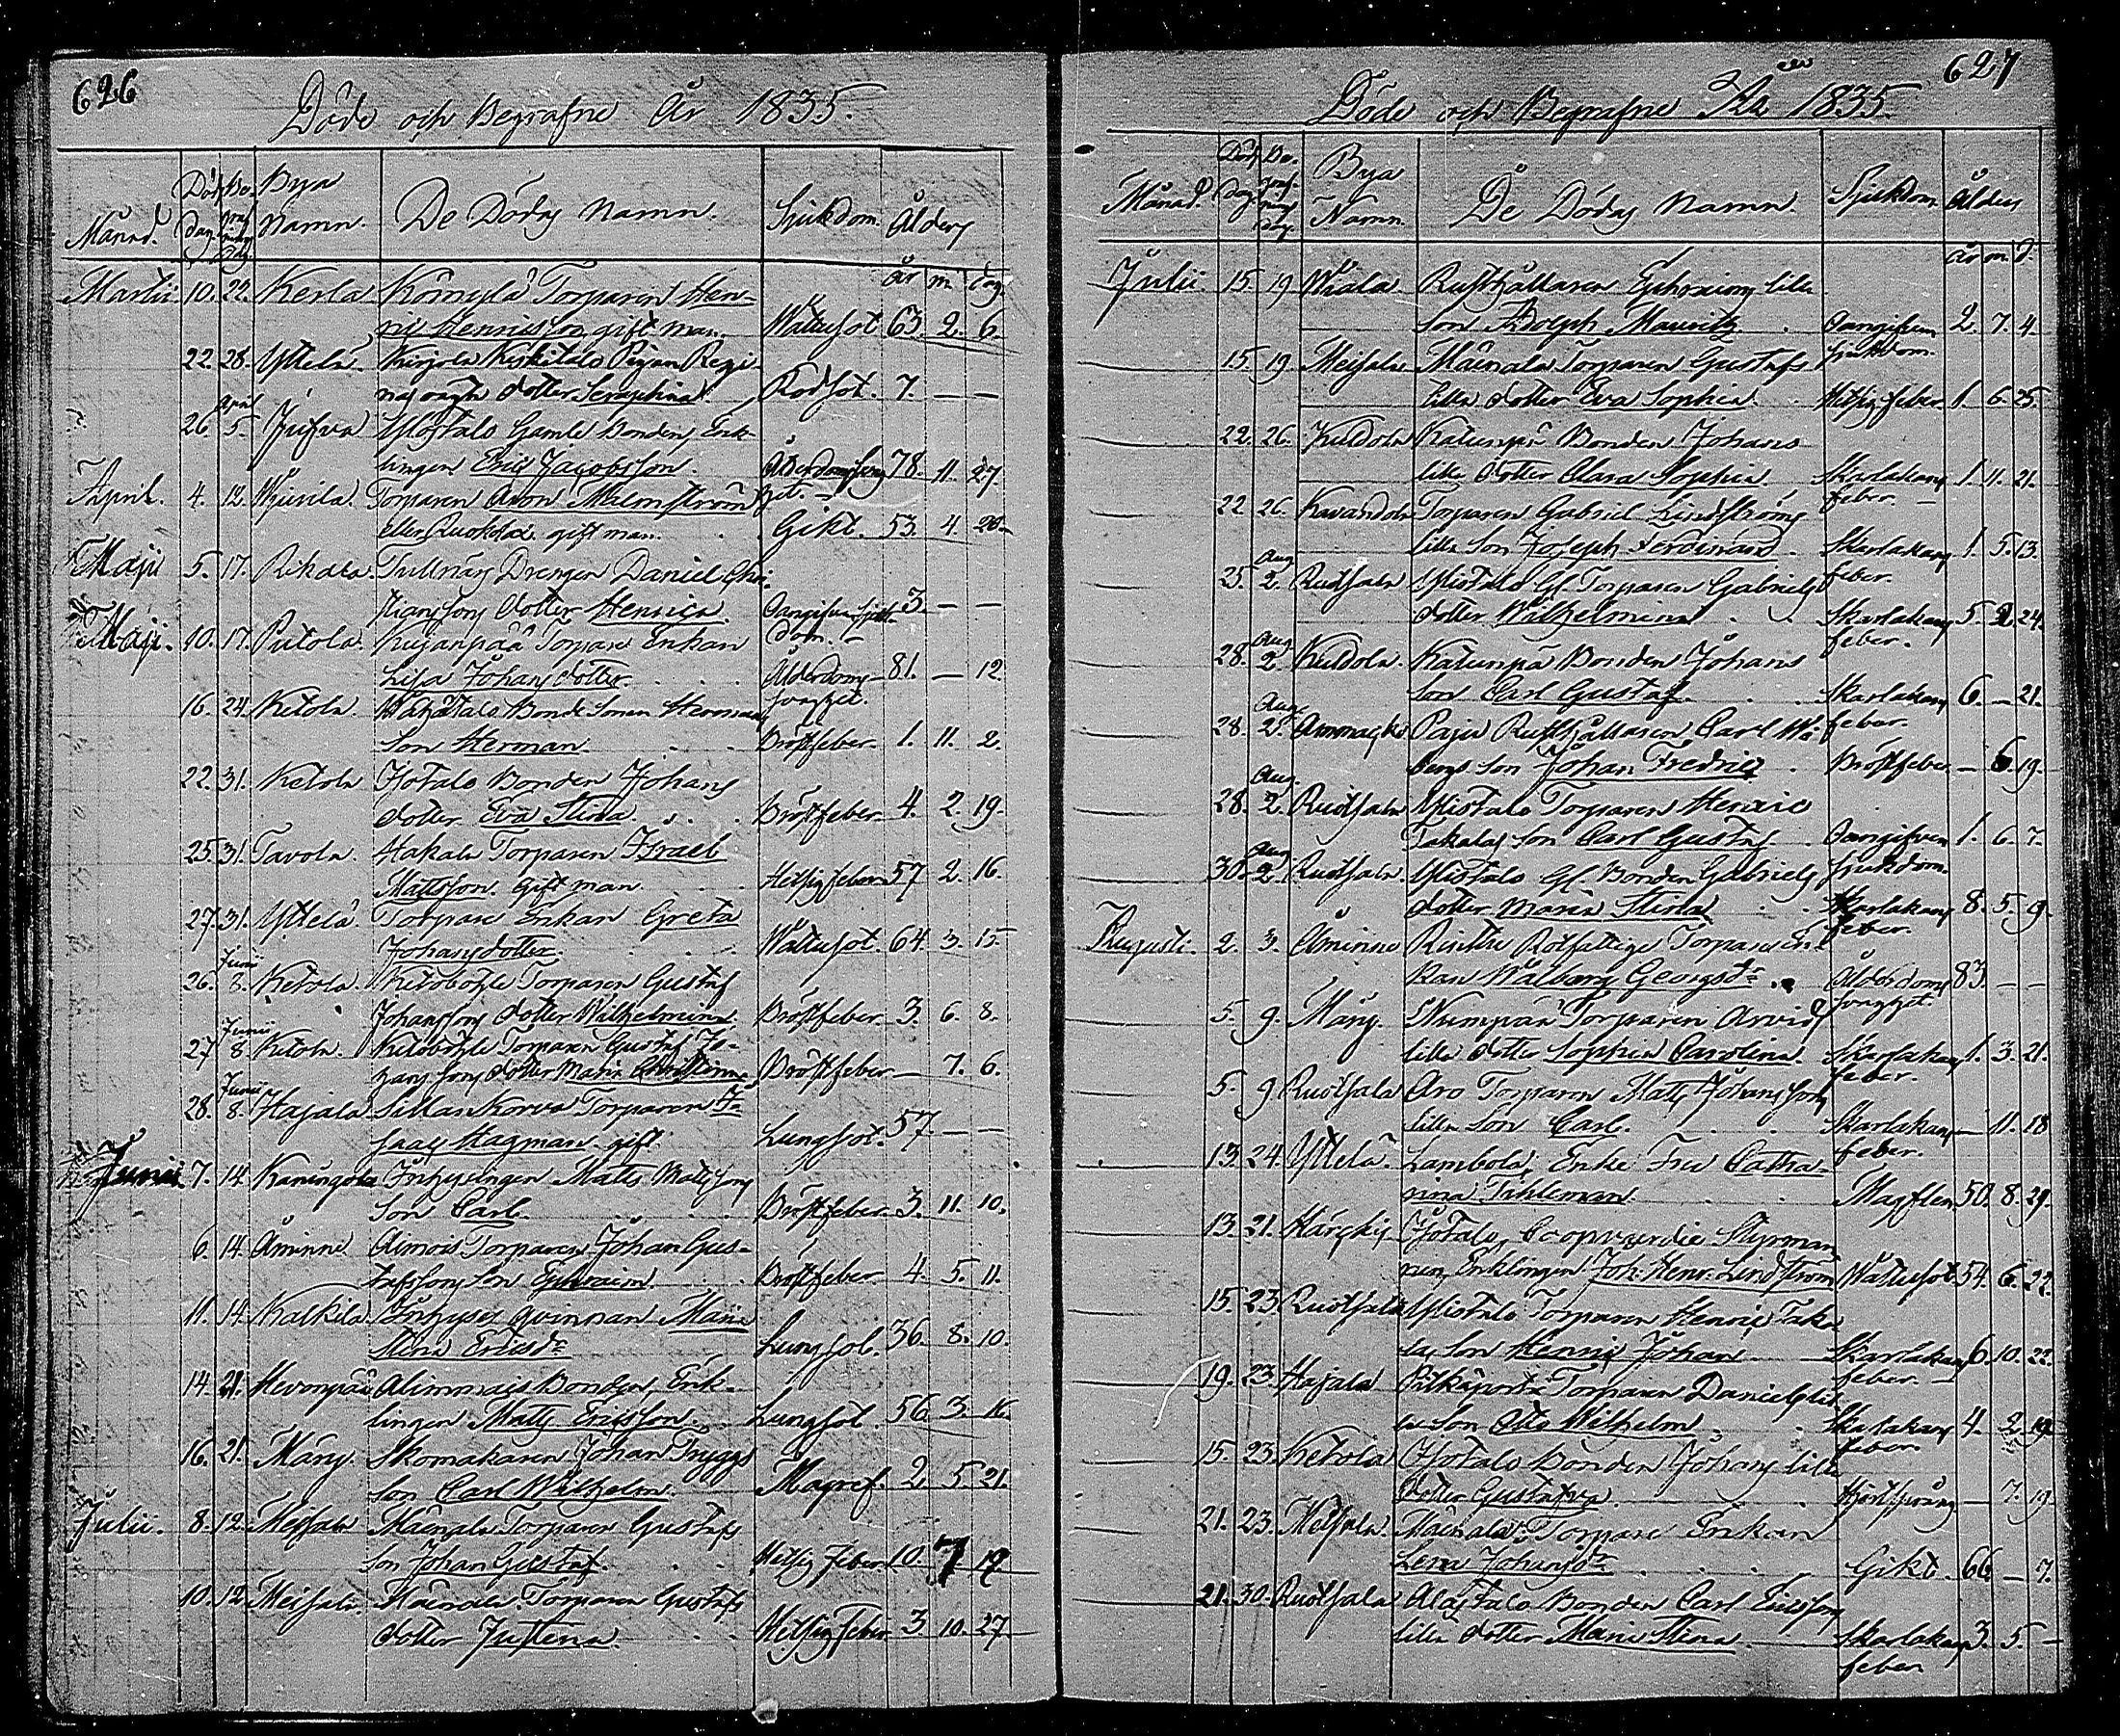 626
Döde och Begrafne År 1835.
Månad. Döds Dag Begrafnings Dag Bya Namn. De Dödas Namn. Sjukdom. Ålder
år m. dag.
Martii 10. 22. Kerla Kömyla Torparen Hen-
ric Henricsson gift man Wattusot 63. 2. 6.
22. 28. Yttelä Pigan Regi-
nas dotter Seraphina Rödsot. 7. — —
April
26. 5. Jufva Gamle Bonden, Enk-
lingen Eric Jacobsson. 78. 11. 27.
April. 4. 12. Torparen Aron Malmström
eller gift man. Gikt. 53. 4. 20.
Maji 5. 17. Rikala Drengen Daniel Chri-
stianssons dotter Henrica Oangifven sjuk- 3. — —
dom.
Maji. 10. 17. Torpare Enkan
Lisa Johansdotter. Ålderdoms- 81. — 12.
16. 24. Ketola Bonde Sonen Hermans
Son Herman Bröstfeber 1. 11. 2.
22. 31. Ketola Yotalo Bonden Johans
dotter Eva Stina. Bröstfeber. 4. 2. 19.
25. 31. Tavola. Hakala Torparen Israel
Mattsson gift man Hetsig feber 57 2. 16.
27. 31. Yttelä Torpare Enkan Greta
Johansdotter. Wattusot. 64. 3. 15.
Junii
26. 8. Ketola. Torparen Gustaf
Johanssons dotter Wilhelmina Bröstfeber. 3. 6. 8.
Junii
27 8. Ketola. Torparen Gustaf Jo-
hanssons dotter Maria Christina Bröstfeber — 7. 6.
Junii
28. 8. Hajala Sillankorva Torparen I-
saac Hagman gift Lungsot. 57 — —
Junii 7. 14. Inhysingen Matts Matssons
Son Carl. Bröstfeber. 3. 11. 10.
6. 14. Åminne Torparen Johan Gus-
tafssons Son Ephraim Bröstfeber 4. 5. 11.
11. 14. Kalkila Inhyses qvinnan Maria
Stina Ericsdr Lungsot. 36. 8. 10.
14. 21. Hevonpää Alimmais Bonden, Enk-
lingen Matts Ericsson. Lungsot. 56. 3. 16.
16. 21. Märy. Skomakaren Johan Tryggs
Son Carl Wilhelm. Magref. 2. 5. 21.
Julii. 8. 12. Meisala Mäenala Torparen Gustafs
Son Johan Gustaf. Hetsig feber 10. 7 19.
10. 12 Meisala. Mäenala Torparen Gustafs
dotter Justina. Hetsig feber 3 10. 27.
627
Döde och Begrafne År 1835.
Månad. Döds dag Begrafnings dag Bya Namn. De Dödas Namn. Sjukdom. Ålder
år m. d.
Julii. 15. 19 Wiala Rusthållaren Ephraims lilla
Son Adolph Mauritz Oangifven 2. 7. 4
sjukdom.
15. 19 Meisala Mäenala Torparen Gustafs
lilla dotter Eva Sophia. Hetsig feber. 1. 6. 25.
22. 26. Kuddola Katunpä Bonden Johans
lilla dotter Clara Sophia Skarlakans 1. 11. 21.
feber.
22 26. Torparen Gabriel Lindströms
lilla Son Joseph Ferdinand. Skarlakans 1. 5. 13.
feber.
Aug
25. 2. Ruotsala Gl. Torparen Gabriels
dotter Wilhelmina Skarlakans 5. 24.
feber.
Aug
28. 2. Kuddola. Katunpä Bonden Johans
Son Carl Gustaf Skarlakans 6. — 21.
feber.
Aug.
28. 2. Ammasko Paju Rusthållaren Carl Wi-
bergs Son Johan Fredric Bröstfeber — 6. 19.
Aug.
28. 2. Ruotsala Torparen Henric
Takalas Son Carl Gustaf Oangifven 1. 6. 7.
sjukdom.
Aug
30. 2. Ruotsala. Gl. Bonden Gabriels
dotter Maria Stina Skarlakans 8. 5. 9.
feber.
Augusti. 2. 3. Åminne Rotfattige Torpare En-
kan Walborg Georgsdr. Ålderdoms 83. — —
5. 9. Märy. Torparen Arvids
lilla dotter Sophia Carolina. Skarlakans 1. 3. 21.
feber.
5. 9 Ruotsala Aro Torparen Matts Johanssons
lilla Son Carl. Skarlakans — 11. 18
feber.
13. 24. Yttelä. Lambola, Enke Fru Catha-
rina Tahleman 50. 8. 29.
13. 21. Yotalo, Coopvaerdie Styrman
nen, Enklingen Joh. Henr. Lindström Wattusot. 54. 6. 22.
15. 23. Ruotsala Torparen Henric Taka
las Son Henric Johan Skarlakans 6. 10. 22.
feber.
19. 23. Hajala Torparen Daniels lil
la Son Otto Wilhelm Skarlakans 4. 2. 19.
feber
15. 23. Ketola Yotalo Bonden Johans lilla
dotter Gustafva. — 7. 19.
21. 23. Meisala. Mäenala Torpare Enkan
Lena Johansdr. Gikt. 66. — 7.
21. 30. Ruotsala Alastalo Bonden Carl Ericssons
lilla dotter Maria Stina Skarlakans 3. 5. —
feber